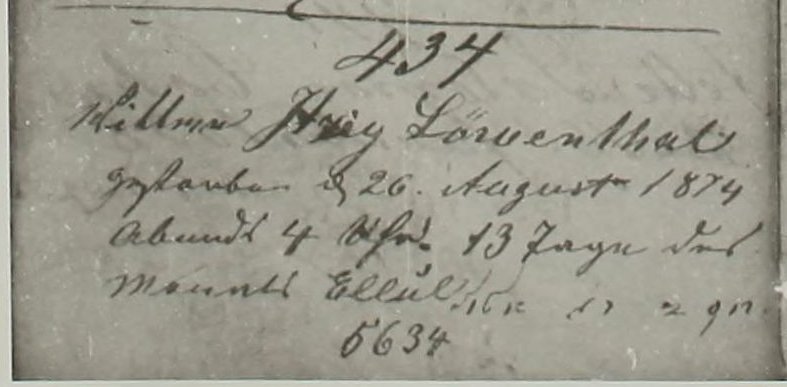 434
Wittwe Löwenthal
gestorben d 26. August 1874
Abends 4 Uhr. 13 Tage des
Monats Ellul
5634